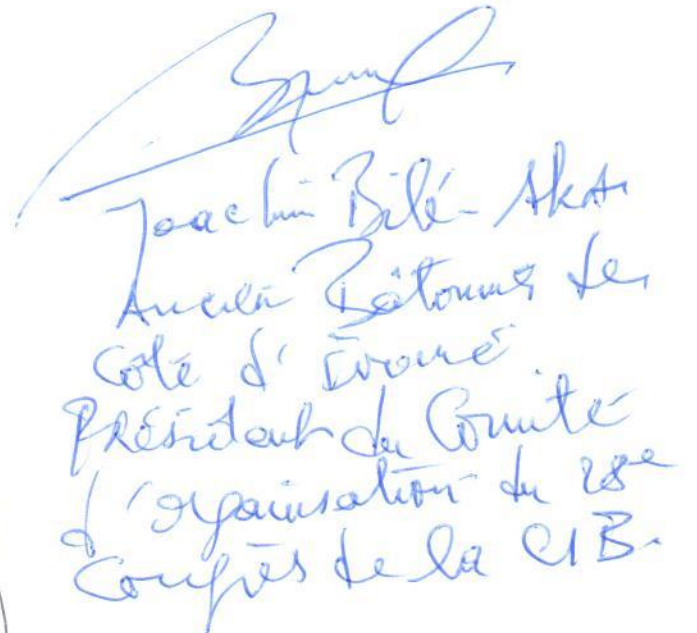 Joachim Bilé-Aka
Ancien Bâtonnier de
Côte d'Ivoire
Président du Comité
d'organisation du 28e
Congrès de la CIB.